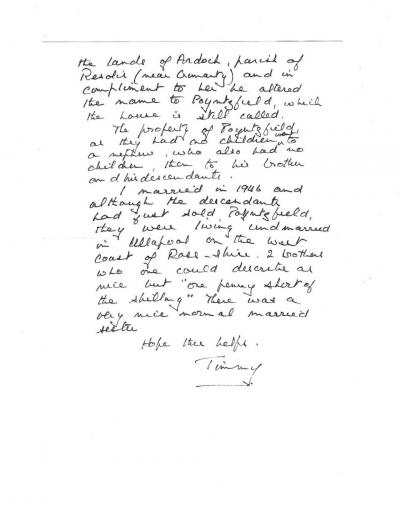 the lands of Ardoch, parish of
Resolis (near Cromarty) and in
compliment to her he altered
the name to Poyntzfield, which
the house is still called.
The property of Poyntzfield,
as they had no children went to
a nephew, who also had no
children, then to his brother
and his descendants.
I married in 1946 and
although the descendants
had just sold Poyntzfield,
they were living unmarried
in Ullapool on the west
coast of Ross-shire. 2 brothers
who one could describe as
nice but "one penny short of
the shilling" There was a
very nice normal married
sister
Hope this helps.
Timmy